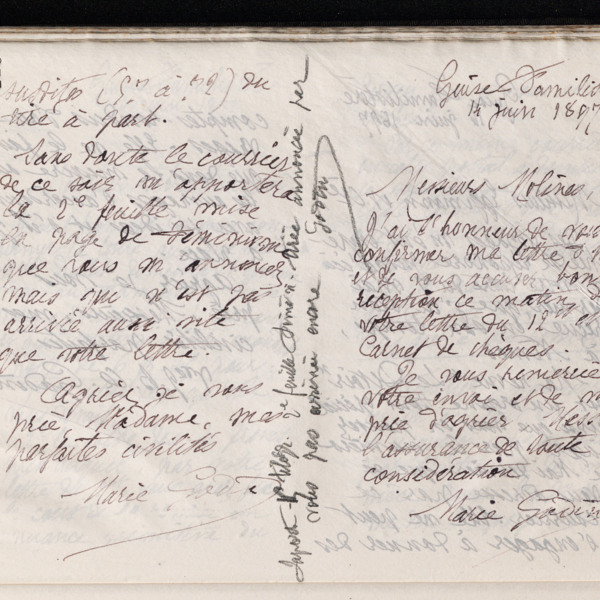 susdites (57 à 72) du
tiré à part.
Sans doute le courrier
de ce soir m'apportera
la 2e feuille mise
en page de
que vous m'annoncez
mais qui n'est pas
arrivée aussi vite
que votre lettre.
Agréez je vous
prie, Madame, mes
parfaites civilités
Marie Godin
2e feuille annoncée par
vous pas arrivée encore
Godin
Guise Familis
14 juin 1897
Messieurs Molines,
J'ai l'honneur de vous
confirmer ma lettre
et de vous accuser bonne
réception ce matin de
votre lettre du 12 et
Carnet de chèques.
Je vous remercie
votre envoi et
prie d'agréer Mess
l'assurance de toute
considération
Marie Godin